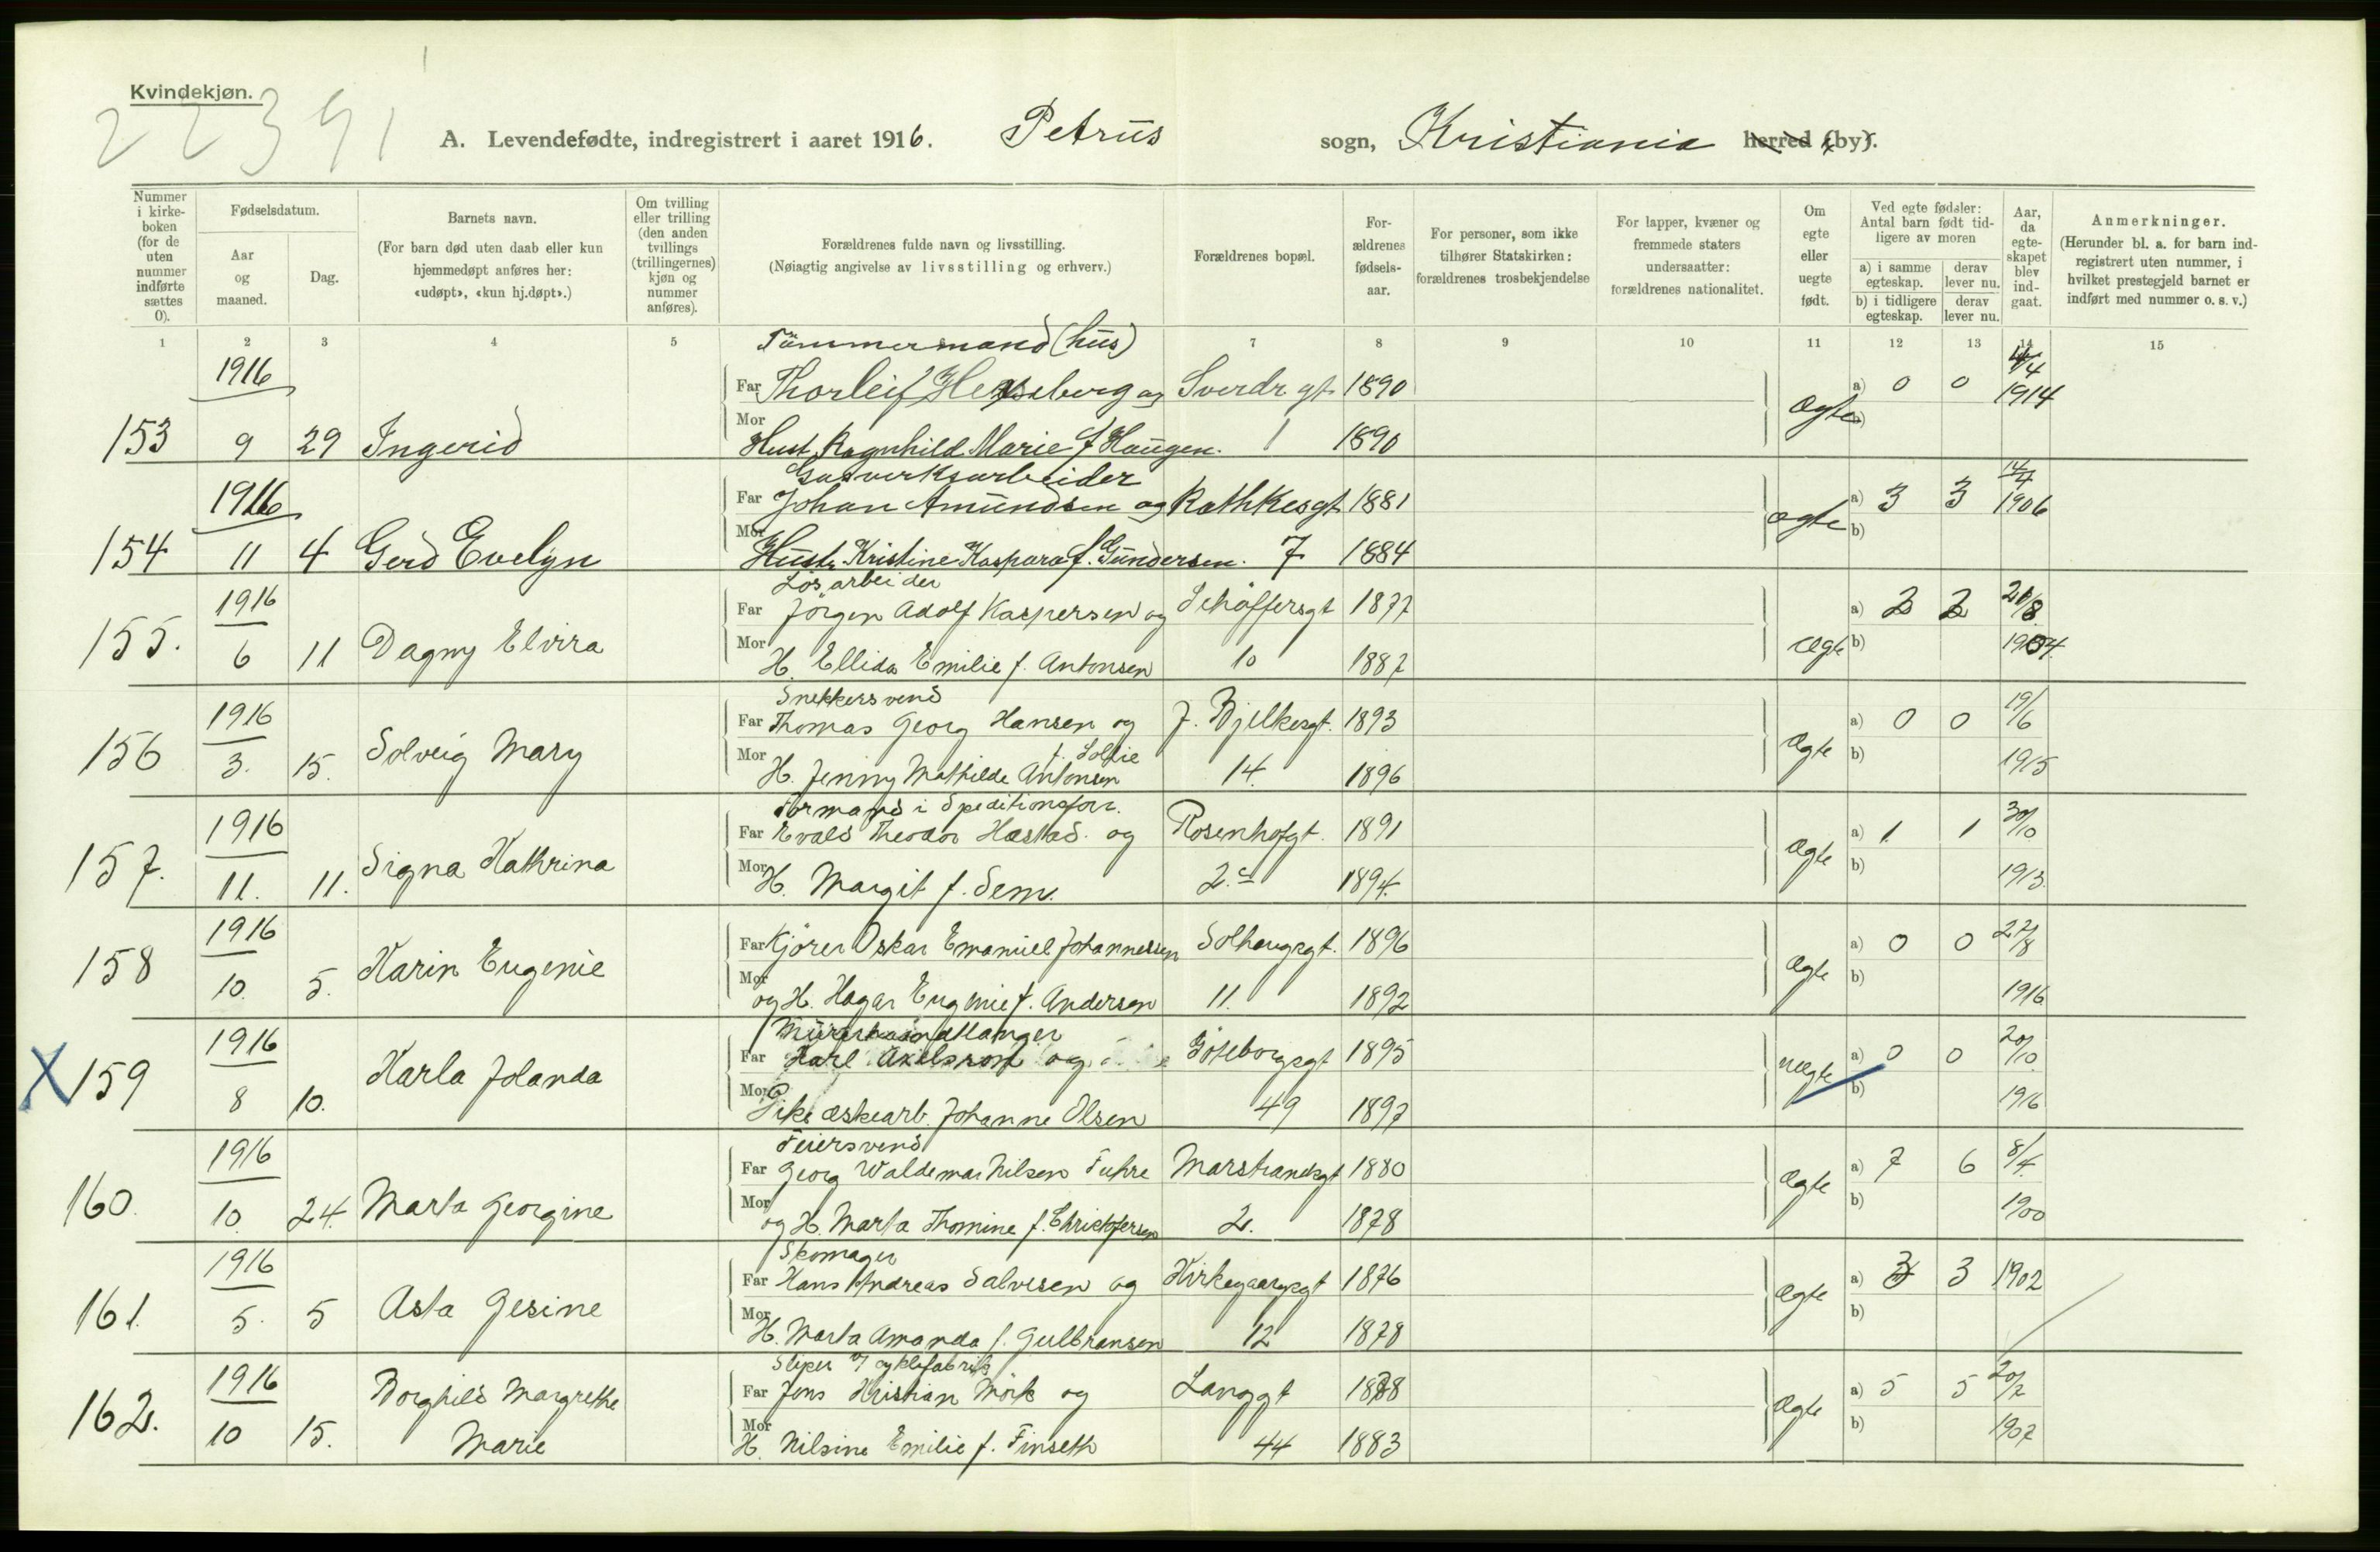 Kvindekjøn.
22391
A. Levendefødte, indregistrert i aaret 1916. Petrus sogn, Kristiania herred (by).
Nummer i kirke-boken (for de uten nummer indførte sættes 0).
Fødselsdatum.
Aar og maaned.
Dag.
Barnets navn.
(For barn død uten daab eller kun hjemmedøpt anføres her: «udøpt», «kun hj.døpt».)
Om tvilling eller trilling (den anden tvillings (trillingernes) kjøn og nummer anføres).
Forældrenes fulde navn og livsstilling.
(Nøiagtig angivelse av livsstilling og erhverv.)
Forældrenes bopæl.
For-ældrenes fødsels-aar.
For personer, som ikke tilhører Statskirken: forældrenes trosbekjendelse
For lapper, kvæner og fremmede staters undersaatter: forældrenes nationalitet.
Om egte eller uegte født.
Ved egte fødsler: Antal barn født tid-ligere av moren
a) i samme egteskap.
derav lever nu.
b) i tidligere egteskap.
derav lever nu.
Aar, da egte-skapet blev ind-gaat.
Anmerkninger.
(Herunder bl. a. for barn ind-registrert uten nummer, i hvilket prestegjeld barnet er indført med nummer o. s. v.)
1 2 3 4 5 7 8 9 10 11 12 13 14 15
Tümmermand (hüs)
1916 Far Thorleif og Sverdr gt 1890 a) 0 0 1914
153 9 29 Ingerid Mor Hust. Ragnhild Marie f Haugen. 1 1890 Ægte
Gasverksarbeider
1916 Far Johan Amündsen og Rathkesgt 1881 a) 3 3 14/4 1906
154 11 4 Gerd Evelyn Mor Hustr. Kristine Kaspara f. Gündersen. 7 1884 ægte b)
Løsarbeider
1916 Far Jörgen Adolf Kaspersen og Schäffersgt 1877 a) 2 2
155. 6 11 Dagny Elvira Mor H. Ellida Emilie f. Antonsen 10 1887 Ægte b)
Snekkersvend
1916 Far Thomas Georg Hansen og J. Bjelkesgt. 1893 a) 0 0 19/6
156 3. 15. Solveig Mary Mor H. Jenny Mathilde Antonsen 14. 1896 Ægte b) 1915
Formand i Speditionsforr.
1916 Far Evald Theodor Hastad. og Rosenhofgt. 1891 a) 1. 1 30/10
157. 11. 11. Signa Kathrina Mor H. Margit f. Sem. 2.c 1894. Ægte b) 1913.
1916 Far Kjører Oskar Emanuel Johannessen Solhaugsgt. 1896 a) 0 0 22/8
158 10. 5. Karin Eugenie Mor og H. Hagar Eugenie f. Andersen 11. 1892 Ægte b) 1916
1916 Far Karl Axelsrost og Göteborgsgt 1895 a) 0 0 20/10
X 159 8 10. Karla Jolanda Mor Pike æskearb. Johanne Olsen 49 1897 uægte b) 1916
Feiersvend
1916 Far Georg Waldemar Nilsen Fuhre Marstrandsgt 1880 a) 7 6 8/4
160. 10. 24. Marta Georgine Mor og H. Marta Thomine f. Christofersen 2. 1878 Ægte b) 1900
Skomager
1916 Far Hans Andreas Salvesen og Kirkegaardsgt 1876 a) 3 3 1902
161. 5. 5 Asta Gesine Mor H. Marta Amanda f. Gulbransen 12 1878 Ægte b)
Sliper v/ cyklefabrik
1916 Far Jens Kristian Mørk og Langgt a) 5 5 20/2
162. 10 15. Borghild Margrethe Marie Mor H. Nilsine Emilie f. Finseth 44 1883 Ægte b) 1907